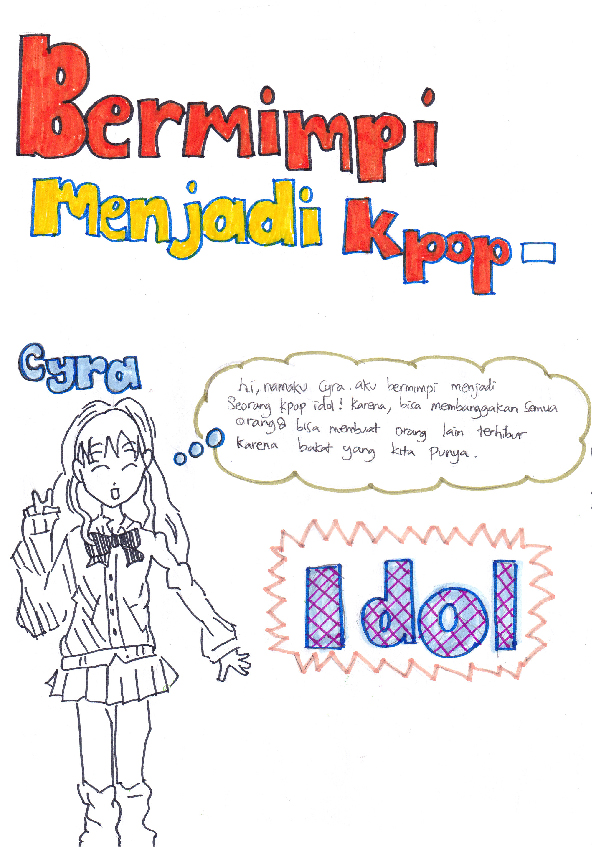 Bermimpi
Menjadi Kpop-
Cyra
hi, namaku Cyra. aku bermimpi menjadi
Seorang kpop idol! karena, bisa membanggakan semua
orang& bisa membuat orang lain terhibur
karena bakat yang kita punya.
Idol